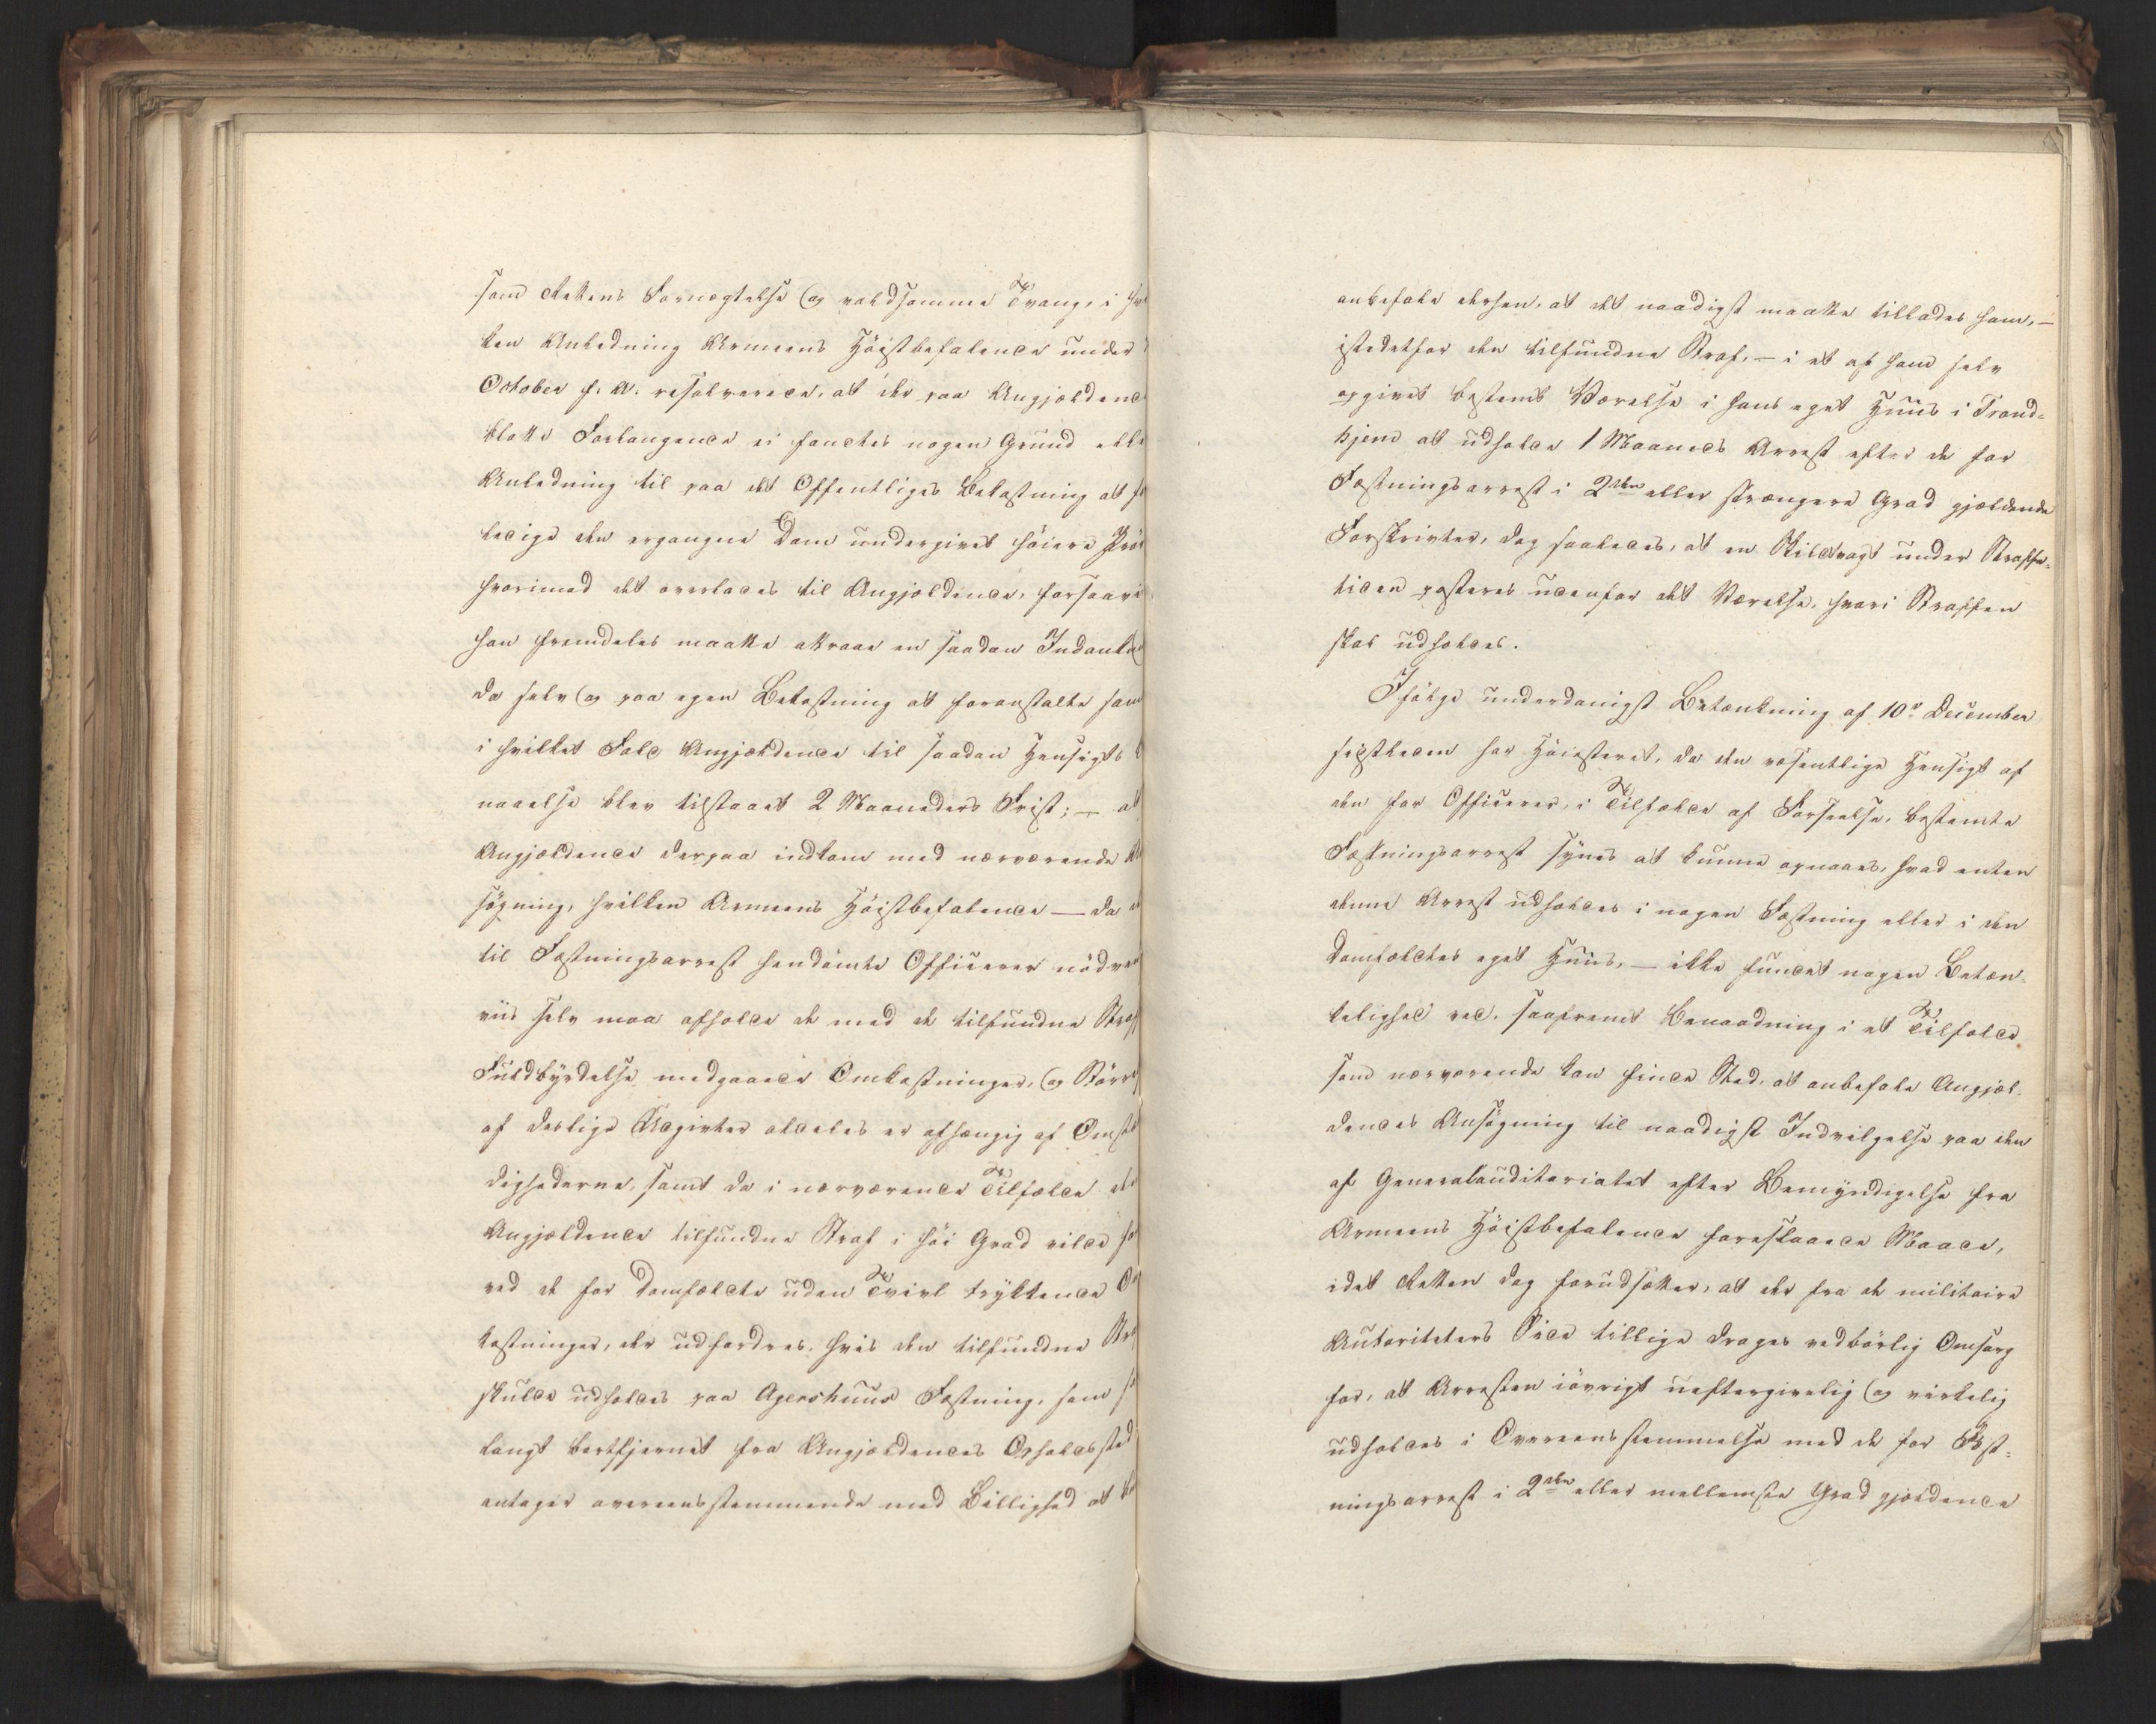 som Rettens Fornægtelse og voldsomme Tvang, i
ken Anledning Armeens Høistbefalende under
October f. A. resolverede, at der paa Angjældend
blotte Forlangende ei fandtes nogen Grund elle
Anledning til paa det Offentliges Bekostning at
ledige den ergangne Dom undergivet høiere Prø
hvorimod det overlades til Angjældende, forsaavi
han fremdeles maatte attraae en saadan Indank
da selv og paa egen Bekostning at foranstalte sam
i hvilket Fald Angjældende til saadan Hensigts
naaelse blev tilstaaet 2 Maaneders Frist; — at
Angjældende derpaa indkom med nærværende
søgning, hvilken Armeens Høistbefalende — da
til Fæstningsarrest hendømte Officerer nødven
viis selv maa afholde de med de tilfundne Straf
Fuldbyrdelse medgaaede Omkostninger, og Større
af deslige Udgivter aldeles er afhængig af Omstæ
dighederne, samt da i nærværende Tilfælde den
Angjældende tilfundne Straf i høi Grad vilde
ved de for Domfældte uden Tvivl trykkende Om
kostninger, der udfordres, hvis den tilfundne Str
skulde udholdes paa Agershuus Fæstning, som
langt bortfjernet fra Angjældendes Opholdssted
antager overeensstemmende med Billighed at
anbefale dersen, at det naadigst maatte tillades ham, —
istedetfor den tilfundne Straf, — i et af ham selv
opgivet bestemt Værelse i hans eget Huus i Trond-
hjem at udholde 1 Maaneds Arrest efter de for
Fæstningsarrest i 2den eller strængere Grad gjældende
Forskrivter, dog saaledes, at en Skildvagt under Straffe-
tiden posteres udenfor det Værelse, hvori Straffen
skal udholdes.
Ifølge underdanigst Betænkning af 10de December
sidstleden har Høiesteret, da den væsentlige Hensigt af
den for Officerer, i Tilfælde af Forseelse, bestemte
Fæstningsarrest synes at kunne opnaaes, hvad enten
denne Arrest udholdes i nogen Fæstning eller i den
Domfældtes eget Huus, — ikke fundet nogen Betæn-
kelighed ved, saafremt Benaadning i et Tilfælde
som nærværende kan finde Sted, at anbefale Angjæl-
dendes Ansøgning til naadigst Indvilgelse paa den
af Generalauditoriatet efter Bemyndigelse fra
Armeens Høistbefalende foreslaaede Maade,
idet Retten dog forudsætter, at der fra de militaire
Autoriteters Side tillige drages vedbørlig Omsorg
for, at Arresten iøvrigt ueftergivelig og virkelig
udholdes i Overeensstemmelse med de for Fæst-
ningsarrest i 2den eller mellemste Grad gjældende